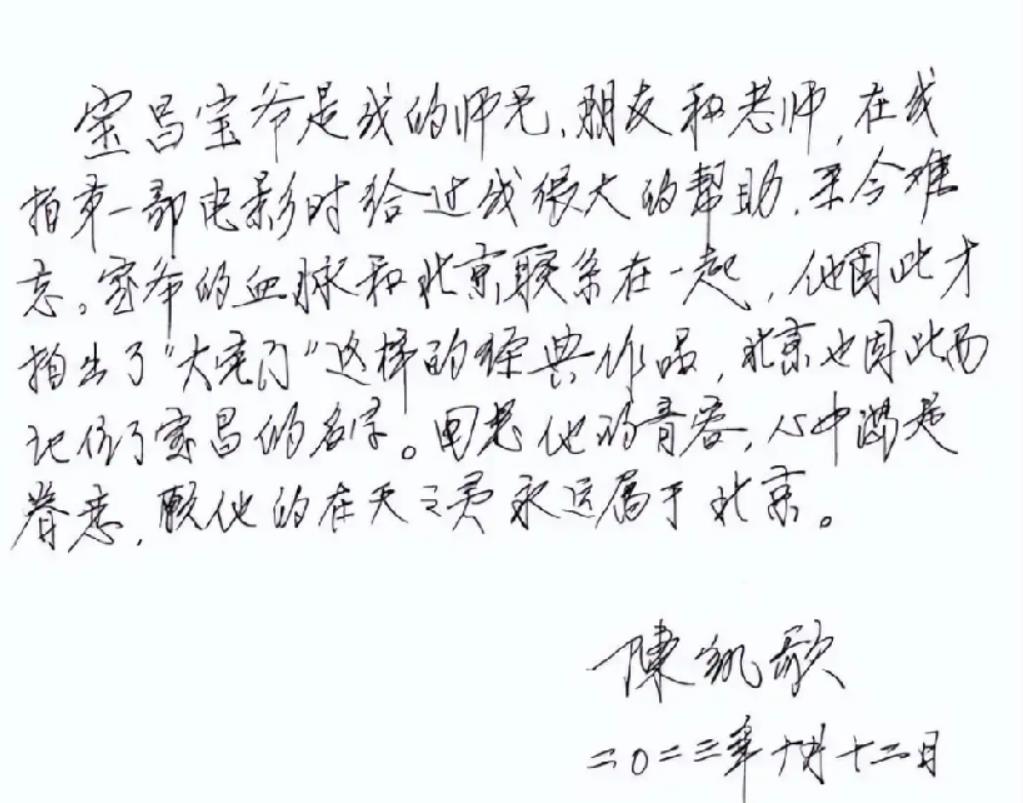 宝昌宝爷是我的师兄、朋友和老师,在我
拍第一部电影时给过我很大的帮助,至今难
忘。宝爷的血脉和北京联系在一起,他因此才
拍出了“大宅门”这样的经典作品,北京也因此而
记住了宝昌的名字。回思他的音容,心中满是
眷恋,愿他的在天之灵永远属于北京。
陳凯歌
二〇二三年十月十二日